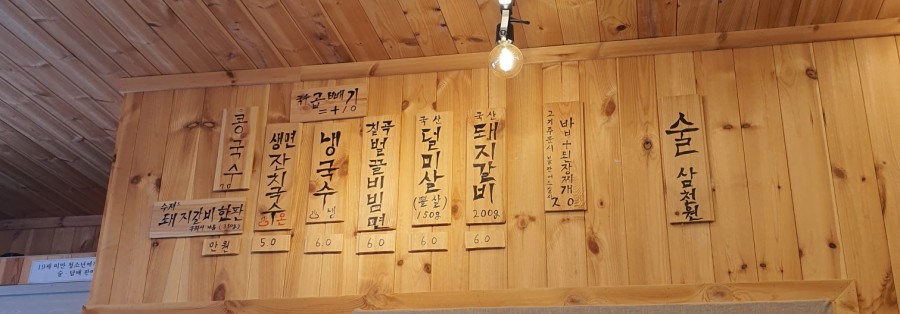 국수 곱빼기
= +1.0
콩국수
7.0
생면
잔치국수
온
5.0
냉국수
냉
6.0
칠곡
벌꿀비빔면
6.0
국산
덜미살
(뽈살)
150g
6.0
국산
돼지갈비
200g
6.0
고기주문시
밥+된장찌개
2.0
술 삼천원
수제!
돼지갈비한판
만원
19세 미만 청소년에게
술 담배 판매